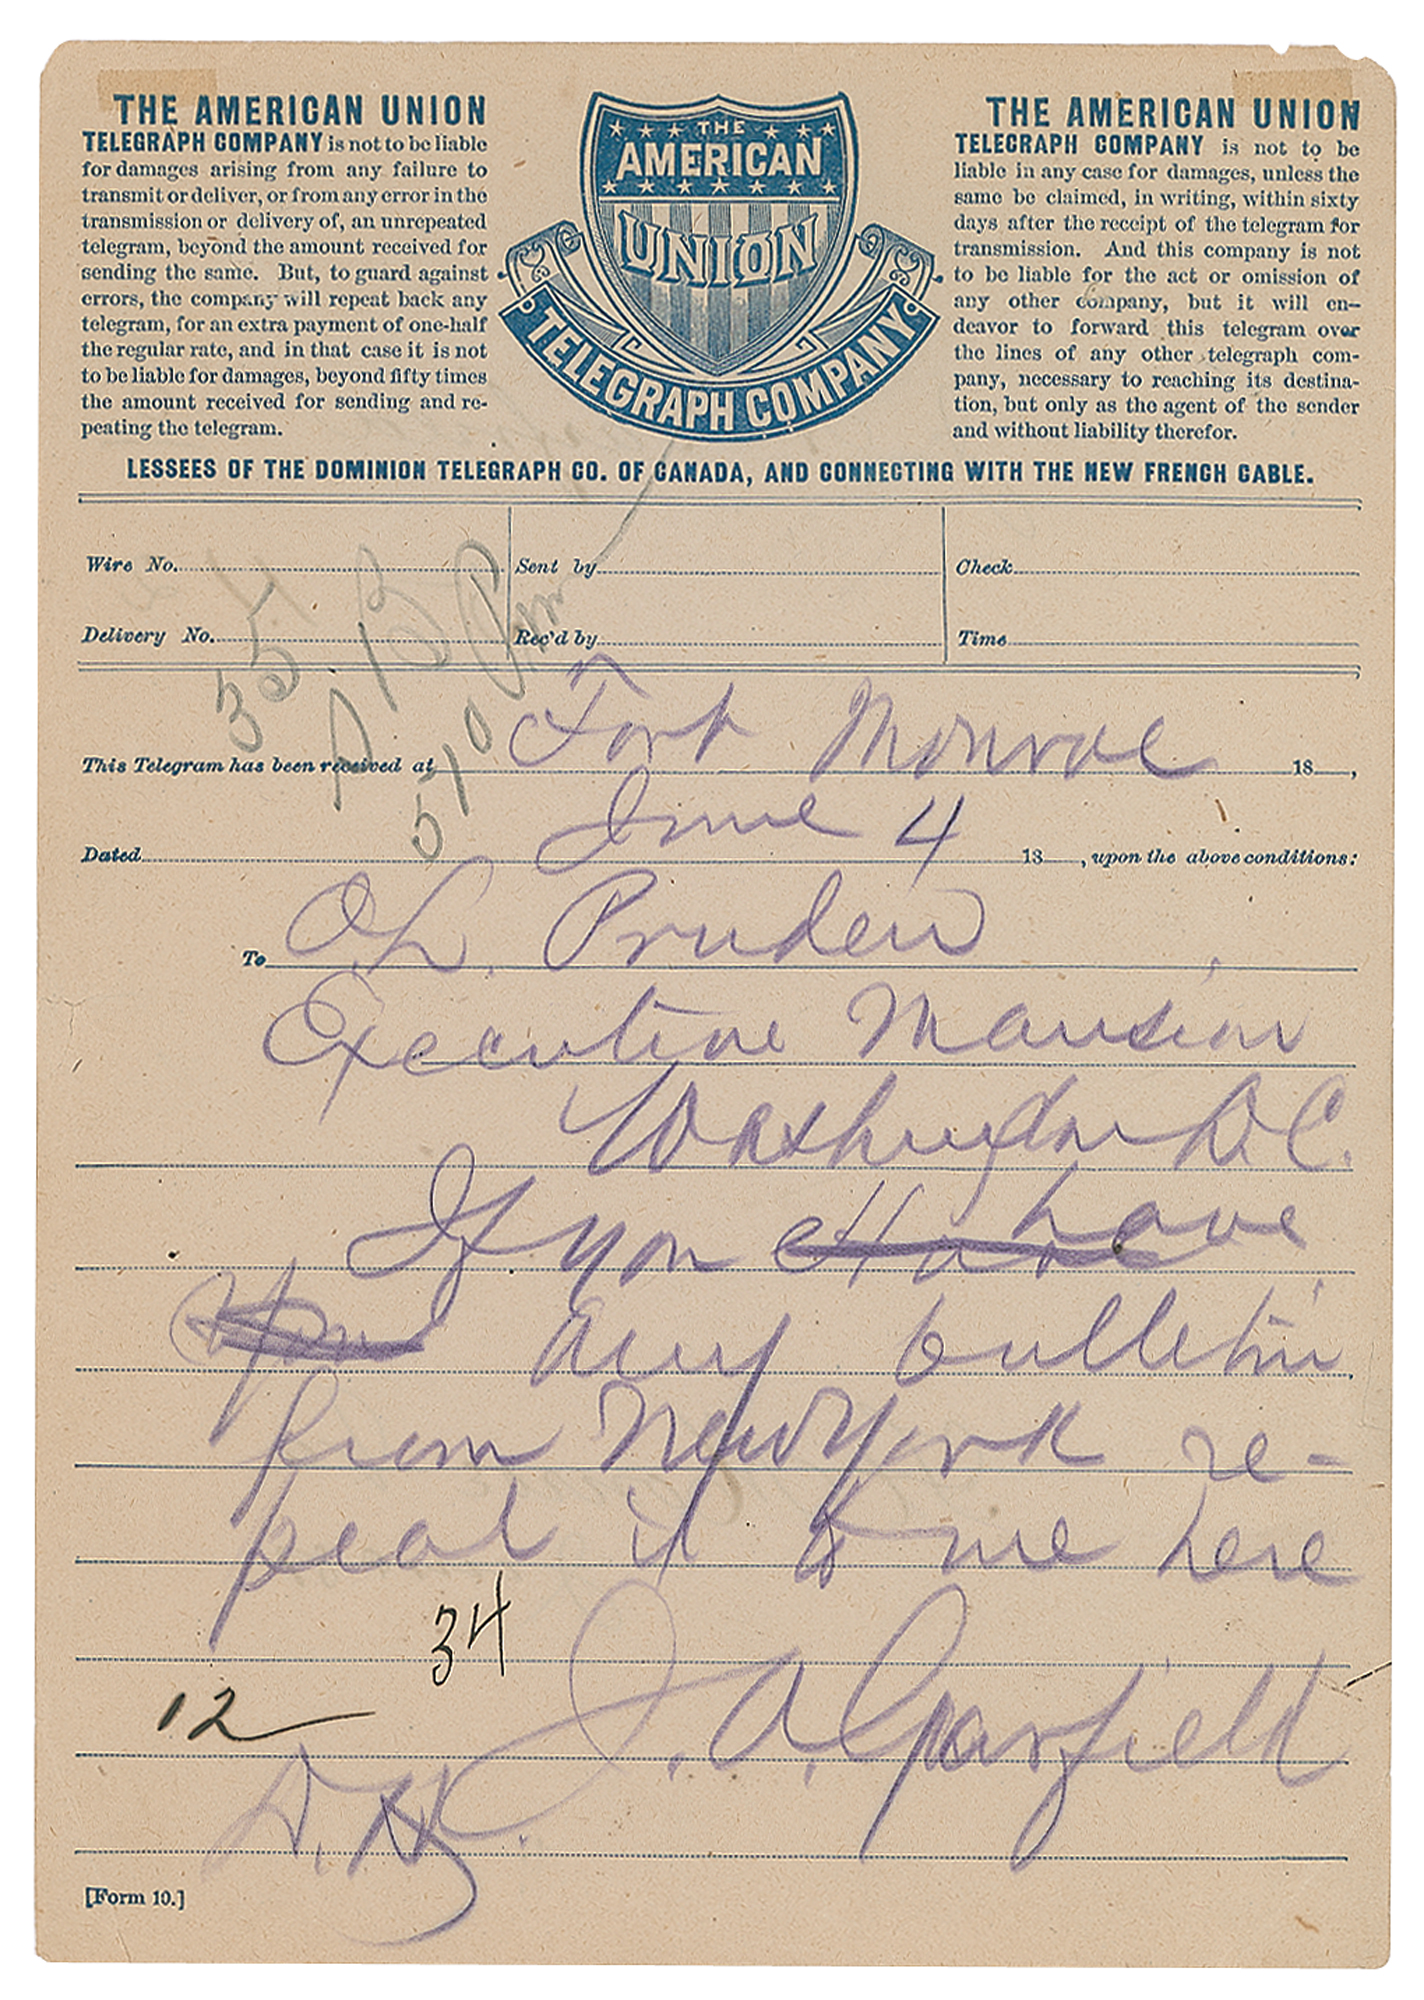 THE AMERICAN UNION
TELEGRAPH COMPANY is not to be liable
for damages arising from any failure to
transmit or deliver, or from any error in the
transmission or delivery of, an unrepeated
telegram, beyond the amount received for
sending the same. But, to guard against
errors, the company will repeat back any
telegram, for an extra payment of one-half
the regular rate, and in that case it is not
to be liable for damages, beyond fifty times
the amount received for sending and re-
peating the telegram.
THE
AMERICAN
UNION
TELEGRAPH COMPANY
THE AMERICAN UNION
TELEGRAPH COMPANY is not to be
liable in any case for damages, unless the
same be claimed, in writing, within sixty
days after the receipt of the telegram for
transmission. And this company is not
to be liable for the act or omission of
any other company, but it will en-
deavor to forward this telegram over
the lines of any other telegraph com-
pany, necessary to reaching its destina-
tion, but only as the agent of the sender
and without liability therefor.
LESSEES OF THE DOMINION TELEGRAPH CO. OF CANADA, AND CONNECTING WITH THE NEW FRENCH CABLE.
Wire No. Sent by Check
Delivery No. Rec'd by Time
35
510 Pm
This Telegram has been received at Fort Monroe 18 ,
Dated June 4 18 , upon the above conditions:
To O.L. Pruden
Executive Mansion
Washington D.C.
If you Have have
any bulletin
from New York re-
peat it to me here
34
12
J. A. Garfield
D.H.
[Form 10.]